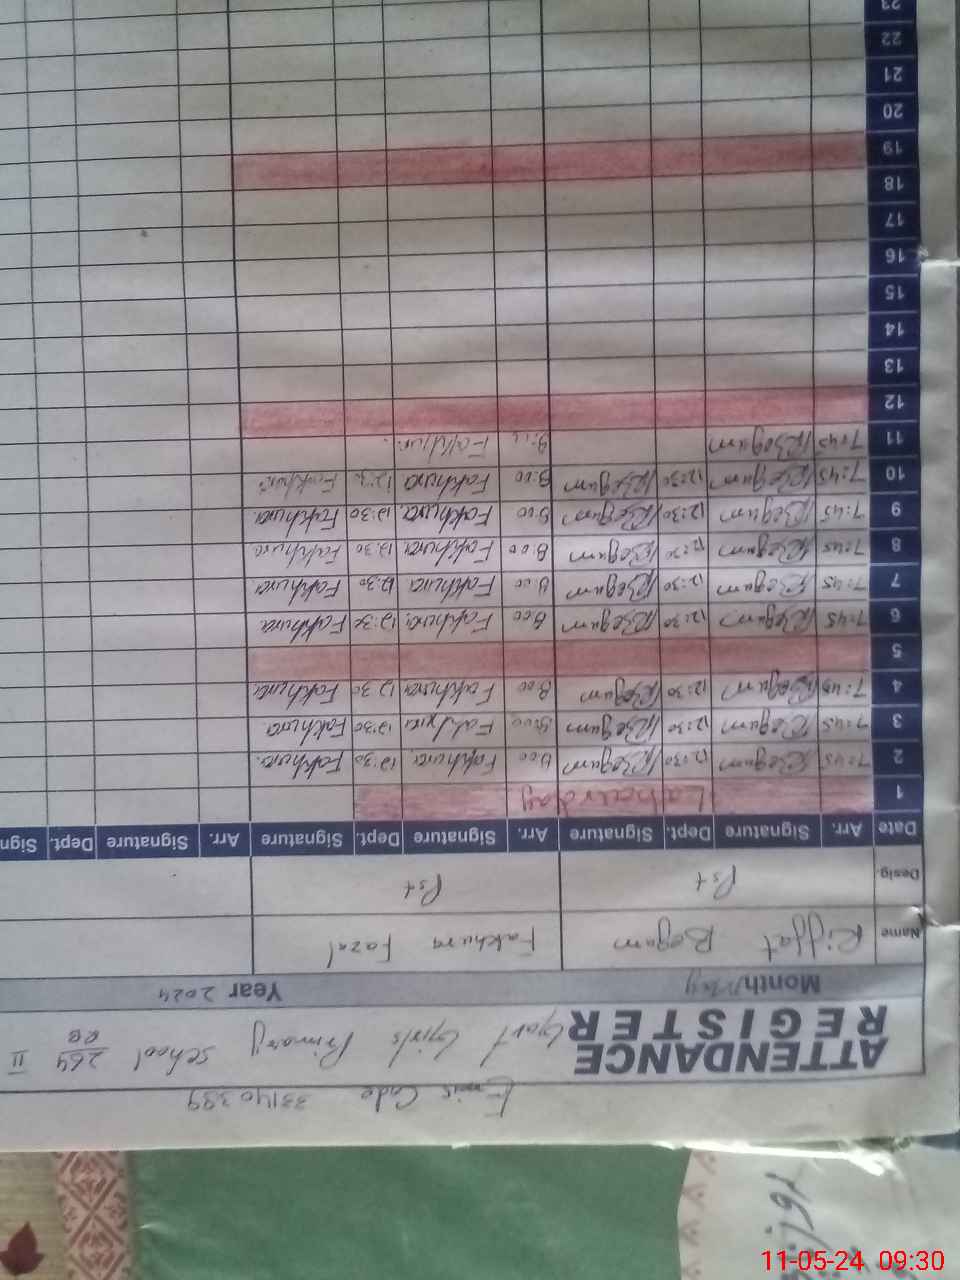 Emis Code 33140399
ATTENDANCE REGISTER Govt Girls Primary School 264 RB II
Month May Year 2024
Name Riffat Begum Fakhura Fazal
Desig. Pst Pst
Date Arr. Signature Dept. Signature Arr. Signature Dept. Signature Arr. Signature Dept. Sign
1 Labourday
2 7:45 RBegum 12:30 RBegum 8:00 Fakhura 12:30 Fakhura
3 7:45 RBegum 12:30 RBegum 8:00 Fakhura 12:30 Fakhura
4 7:45 RBegum 12:30 RBegum 8:00 Fakhura 12:30 Fakhura
5
6 7:45 RBegum 12:30 RBegum 8:00 Fakhura 12:30 Fakhura
7 7:45 RBegum 12:30 RBegum 8:00 Fakhura 12:30 Fakhura
8 7:45 RBegum 12:30 RBegum 8:00 Fakhura 12:30 Fakhura
9 7:45 RBegum 12:30 RBegum 8:00 Fakhura 12:30 Fakhura
10 7:45 RBegum 12:30 RBegum 8:00 Fakhura 12:30 Fakhura
11 7:45 RBegum Fakhura
12
13
14
15
16
17
18
19
20
21
22
23
11-05-24 09:30